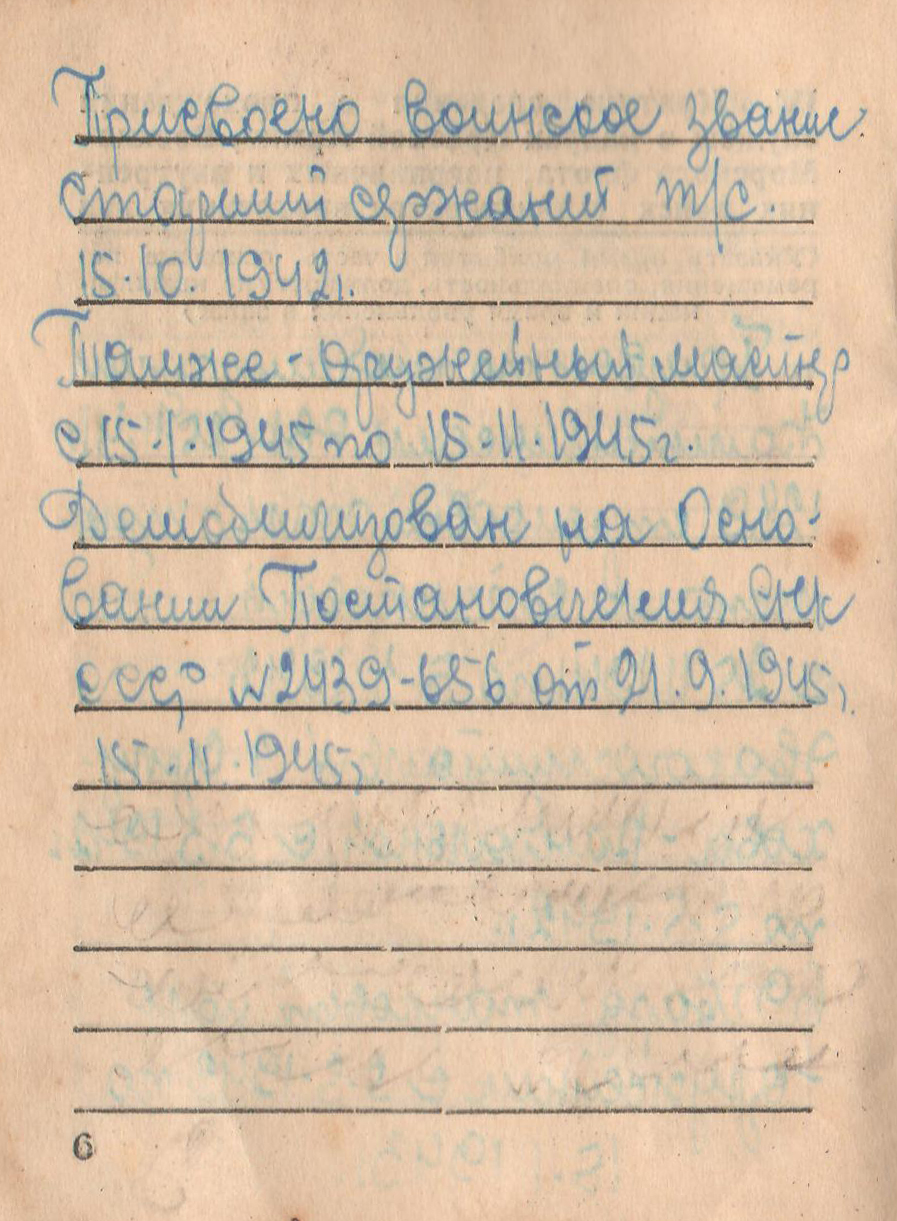 Присвоено воинское звание
Старший сержант т/с.
15.10.1942г.
Там же - оружейный мастер
с 15.1.1945 по 15.11.1945г.
Демобилизован на Осно-
вании Постановления СНК
СССР №2439-656 от 21.9.1945г.
15.11.1945г.
6